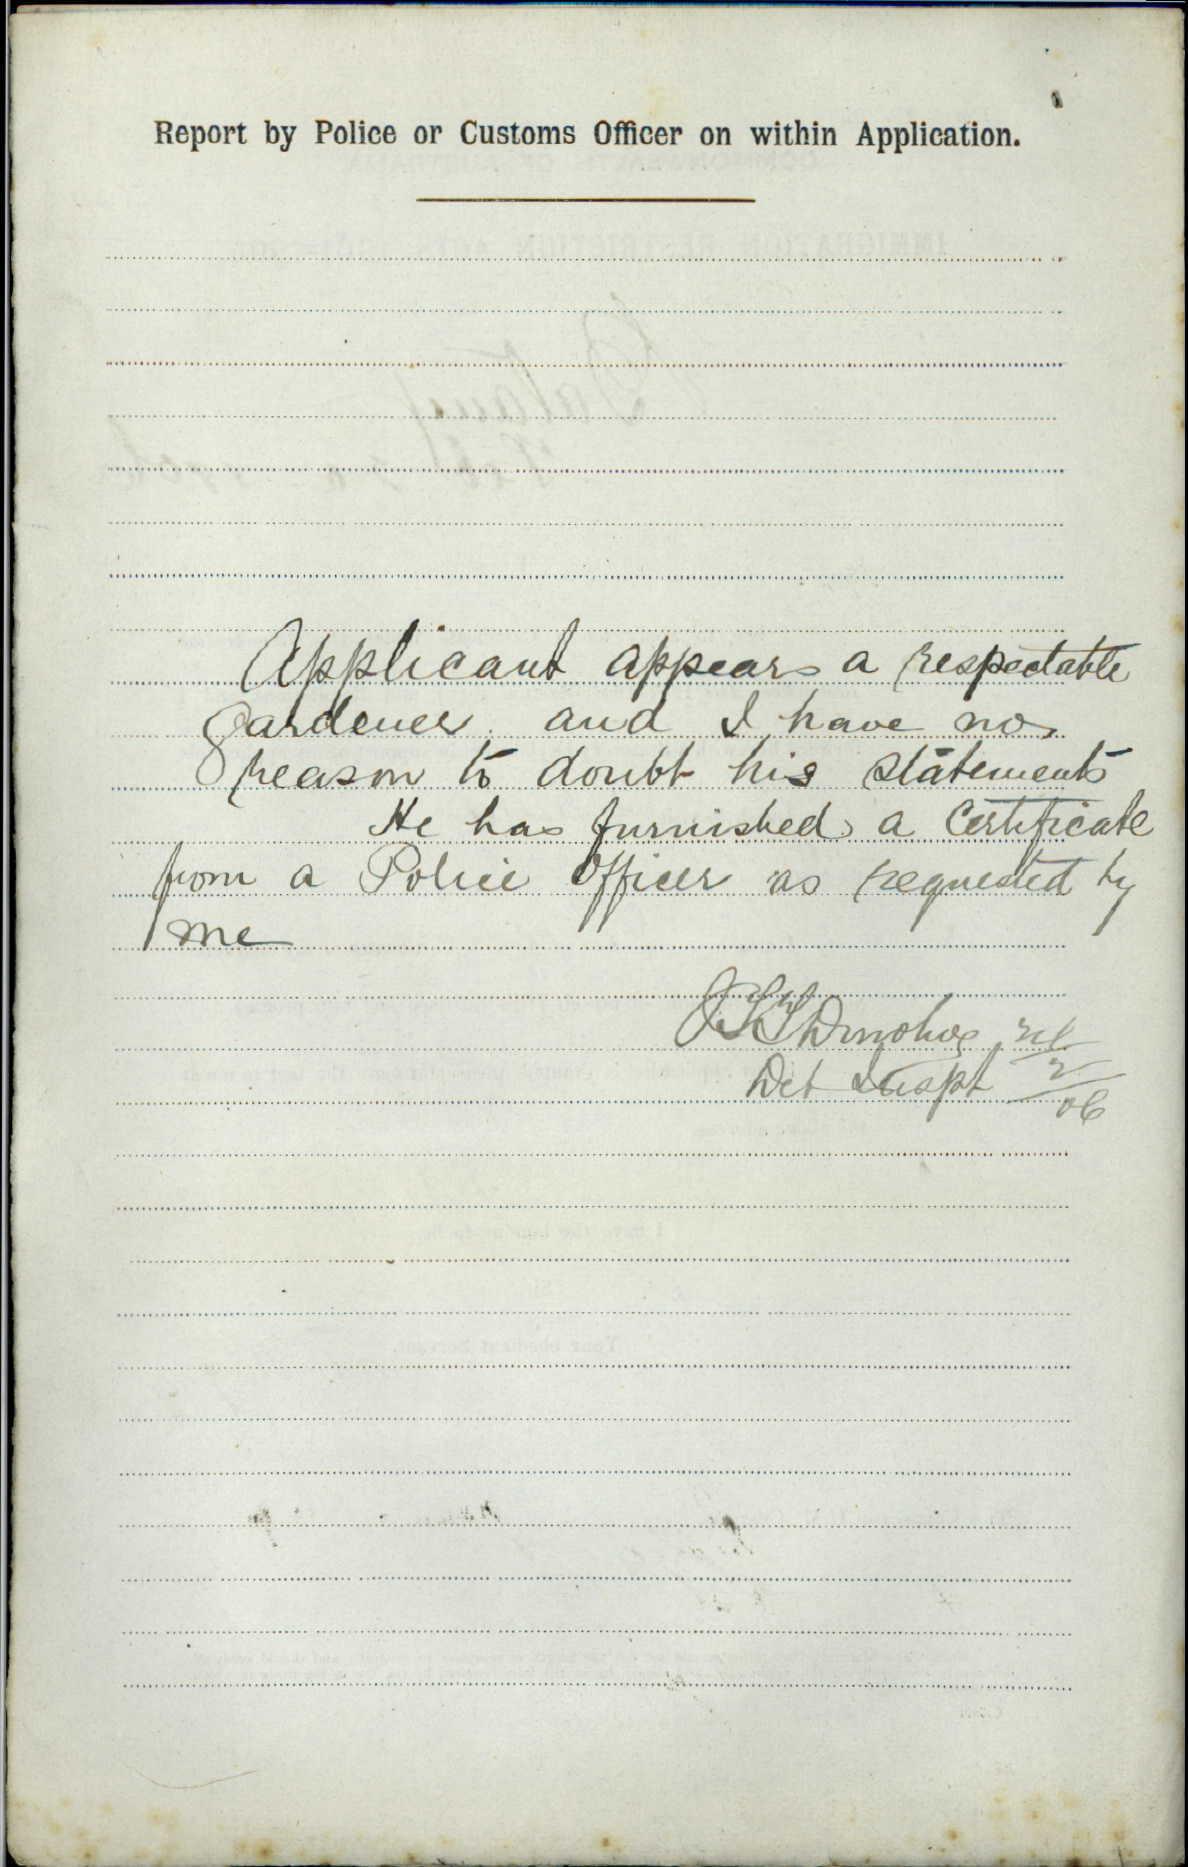 Report by Police or Customs Officer on within Application.
Applicant appears a respectable
gardener and I have no
reason to doubt his statements
He has furnished a Certificate
from a Police Officer as requested by
me
Donohoe
Det Inspr
2
06